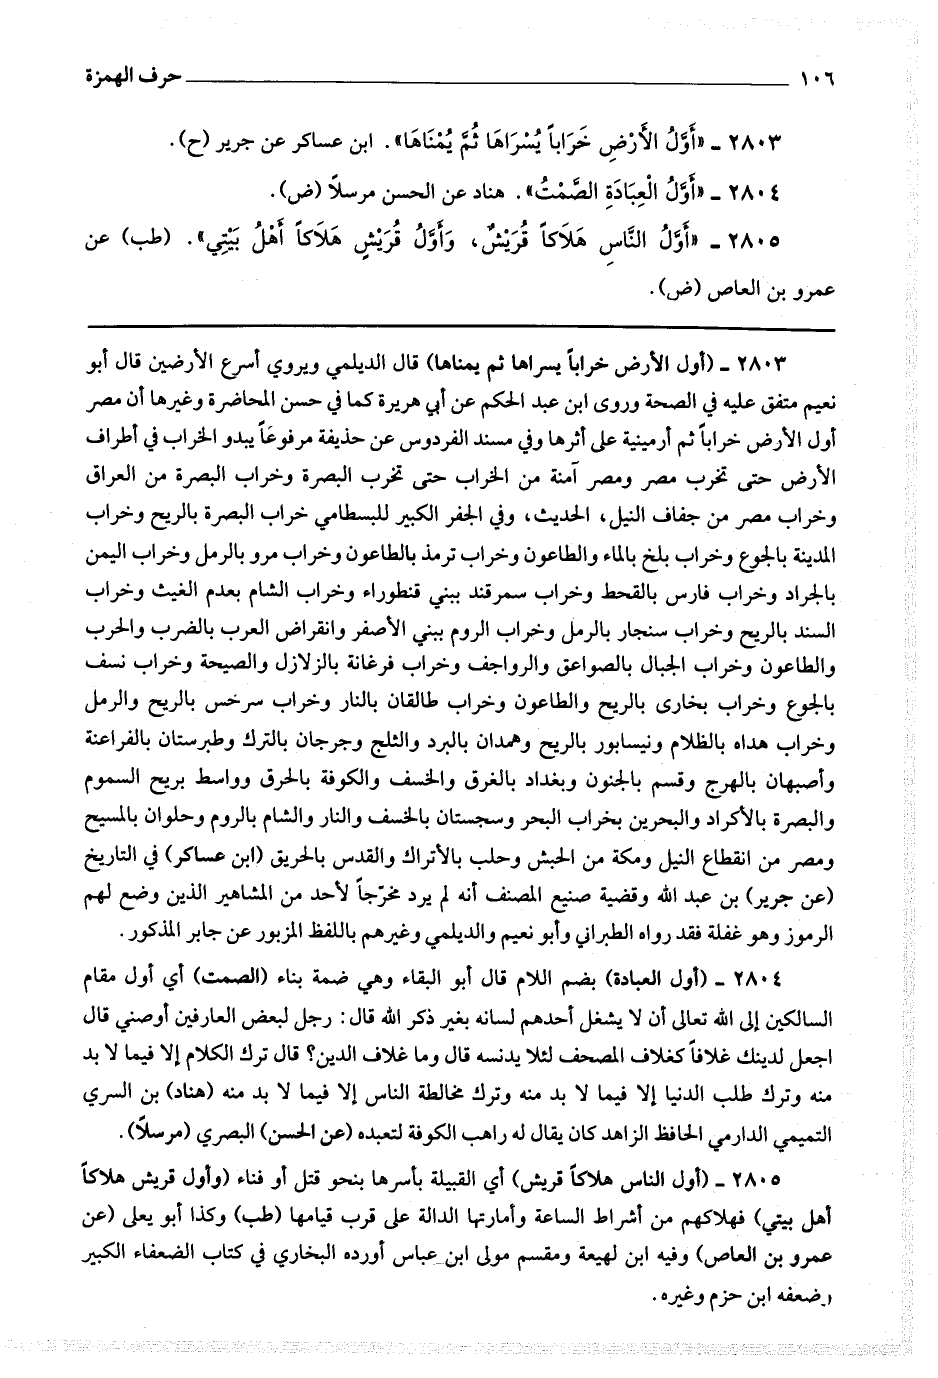 ١٠٦ حرف الهمزة
٢٨٠٣ ـ «أَوَّلُ الأَرْضِ خَرَاباً يُسْرَاهَا ثُمَّ يُمْنَاهَا». ابن عساكر عن جرير (ح).
٢٨٠٤ ـ «أَوَّلُ الْعِبَادَةِ الصَّمْتُ». هناد عن الحسن مرسلاً (ض).
٢٨٠٥ ـ «أَوَّلُ النَّاسِ هَلَاكاً قُرَيْشٌ، وَأَوَّلُ قُرَيْشٍ هَلَاكاً أَهْلُ بَيْتِي». (طب) عن
عمرو بن العاص (ض).
٢٨٠٣ ـ (أول الأرض خراباً يسراها ثم يمناها) قال الديلمي ويروي أسرع الأرضين قال أبو
نعيم متفق عليه في الصحة وروى ابن عبد الحكم عن أبي هريرة كما في حسن المحاضرة وغيرها أن مصر
أول الأرض خراباً ثم أرمينية على أثرها وفي مسند الفردوس عن حذيفة مرفوعاً يبدو الخراب في أطراف
الأرض حتى تخرب مصر ومصر آمنة من الخراب حتى تخرب البصرة وخراب البصرة من العراق
وخراب مصر من جفاف النيل، الحديث، وفي الجفر الكبير للبسطامي خراب البصرة بالريح وخراب
المدينة بالجوع وخراب بلخ بالماء والطاعون وخراب ترمذ بالطاعون وخراب مرو بالرمل وخراب اليمن
بالجراد وخراب فارس بالقحط وخراب سمرقند ببني قنطوراء وخراب الشام بعدم الغيث وخراب
السند بالريح وخراب سنجار بالرمل وخراب الروم ببني الأصفر وانقراض العرب بالضرب والحرب
والطاعون وخراب الجبال بالصواعق والرواجف وخراب فرغانة بالزلازل والصيحة وخراب نسف
بالجوع وخراب بخارى بالريح والطاعون وخراب طالقان بالنار وخراب سرخس بالريح والرمل
وخراب هداه بالظلام ونيسابور بالريح وهمدان بالبرد والثلج وجرجان بالترك وطبرستان بالفراعنة
وأصبهان بالهرج وقسم بالجنون وبغداد بالغرق والخسف والكوفة بالحرق وواسط بريح السموم
والبصرة بالأكراد والبحرين بخراب البحر وسجستان بالخسف والنار والشام بالروم وحلوان بالمسيح
ومصر من انقطاع النيل ومكة من الحبش وحلب بالأتراك والقدس بالحريق (ابن عساكر) في التاريخ
(عن جرير) بن عبد الله وقضية صنيع المصنف أنه لم يرد مخرّجاً لأحد من المشاهير الذين وضع لهم
الرموز وهو غفلة فقد رواه الطبراني وأبو نعيم والديلمي وغيرهم باللفظ المزبور عن جابر المذكور.
٢٨٠٤ ـ (أول العبادة) بضم اللام قال أبو البقاء وهي ضمة بناء (الصمت) أي أول مقام
السالكين إلى الله تعالى أن لا يشغل أحدهم لسانه بغير ذكر الله قال: رجل لبعض العارفين أوصني قال
اجعل لدينك غلافاً كغلاف المصحف لئلا يدنسه قال وما غلاف الدين؟ قال ترك الكلام إلا فيما لا بد
منه وترك طلب الدنيا إلا فيما لا بد منه وترك مخالطة الناس إلا فيما لا بد منه (هناد) بن السري
التميمي الدارمي الحافظ الزاهد كان يقال له راهب الكوفة لتعبده (عن الحسن) البصري (مرسلاً).
٢٨٠٥ ـ (أول الناس هلاكاً قريش) أي القبيلة بأسرها بنحو قتل أو فناء (وأول قريش هلاكاً
أهل بيتي) فهلاكهم من أشراط الساعة وأمارتها الدالة على قرب قيامها (طب) وكذا أبو يعلى (عن
عمرو بن العاص) وفيه ابن لهيعة ومقسم مولى ابن عباس أورده البخاري في كتاب الضعفاء الكبير
وضعفه ابن حزم وغيره.